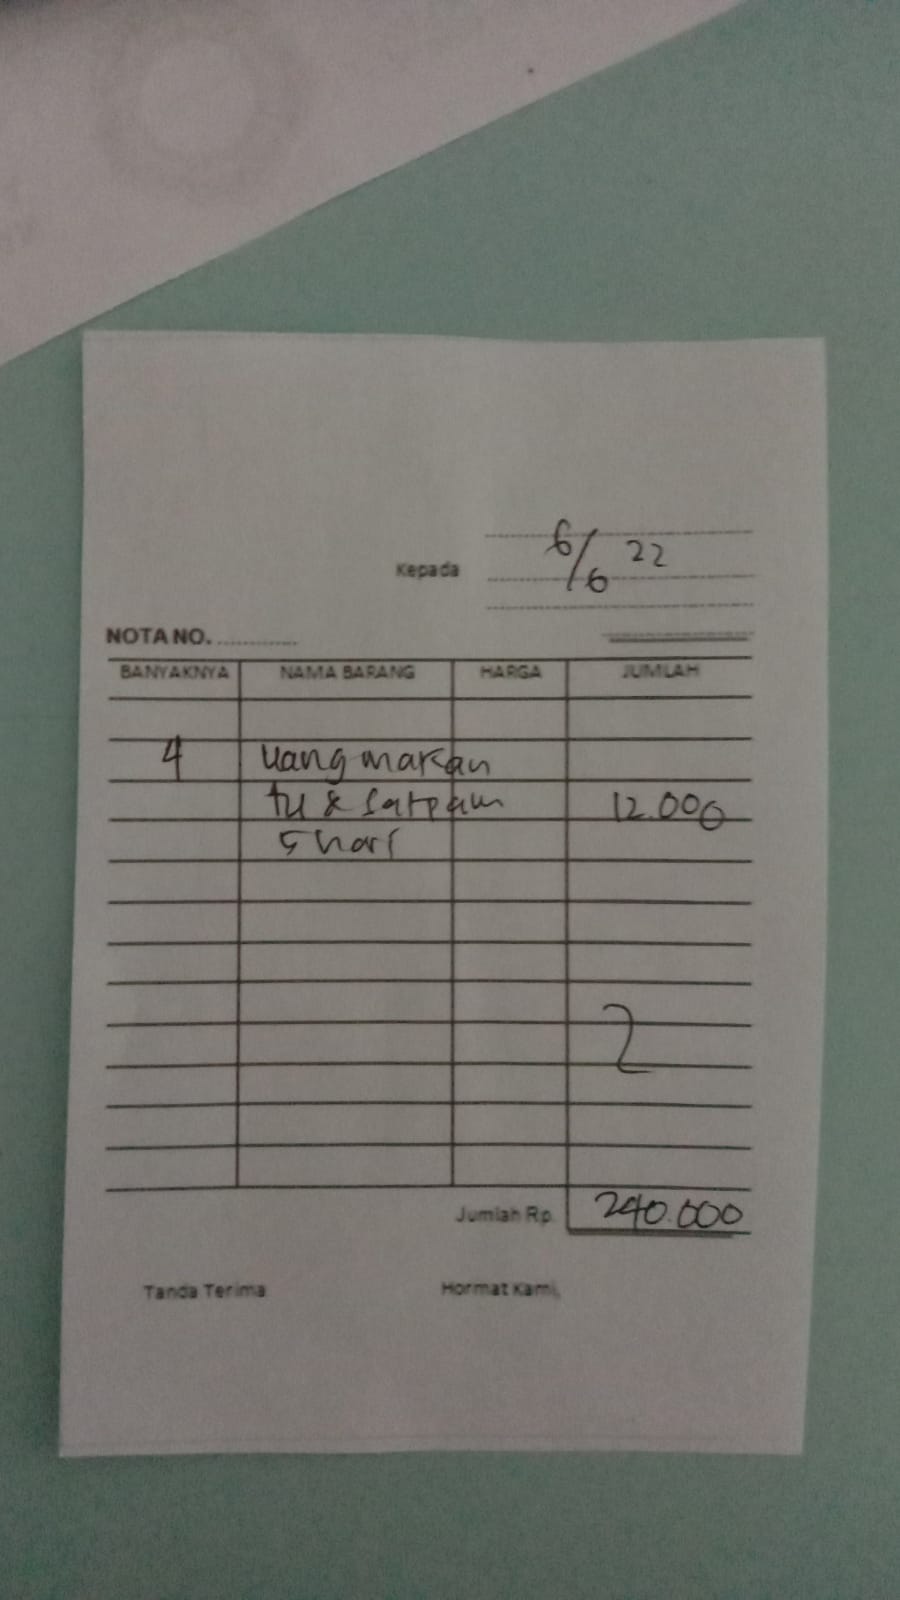 6/6 22
Kepada
NOTA NO. ..............
BANYAKNYA NAMA BARANG HARGA JUMLAH
4 uang makan
tu & satpam 12.000
5 hari
Jumlah Rp. 240.000
Tanda Terima Hormat Kami,